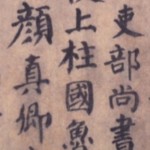 吏部尚書
上柱國魯
顏真卿